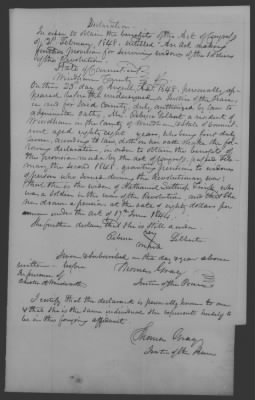 Declaration
In order to obtain the benefits of the Act of Congress
of 2d February, 1848, entitled "An act making
further provision for surviving widows of the soldiers
of the Revolution."
State of Connecticut
Windham County
On this 23 day of August 1848, personally ap-
peared before the undersigned a Justice of the Peace
in and for Said County, duly authorized by law to
administer oaths, Mrs. a resident of
Windham in the County of Windham & State of Connecti-
cut aged eighty eight years, who being first duly
Sworn, according to law, doth on her oath make the fol-
lowing declaration, in order to obtain the benefits of
the provision made by the act of Congress, passed Feb-
ruary the second 1848, granting pensions to widows
of persons who served during the Revolutionary war:
That she is the widow of Nathaniel who
was a Soldier in the war of the Revolution and that She
has drawn a pension at the rate of eighty dollars per
annum under the act of 17th June 1844.
She further declares that she is still a widow
her
mark
Sworn & subscribed on the day & year above
written before
In presence of Thomas Gray
Charles Justice of the Peace
I certify that the declarant is personally known to me
& that she is the same individual she represents herself to
be in the foregoing affidavit.
Thomas Gray
Justice of the Peace